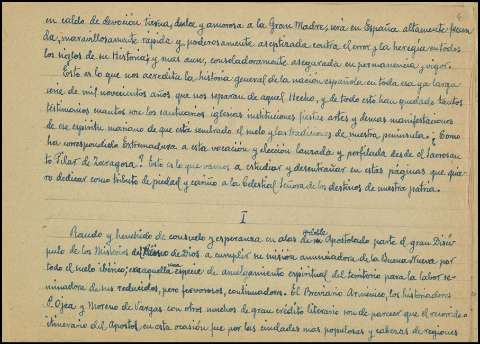 en caldo de devoción tierna, dulce y amorosa a la Gran Madre, será en España altamente fecun
da, maravillosamente rápida y poderosamente aseptizada contra el error y la heregia en todos
los siglos de su Historia; y mas aun, consoladoramente asegurada en permanencia y vigor.
Esto es lo que nos acredita la historia general de la nación española en toda esa ya larga
serie de mil novecientos años que nos separan de aquel Hecho, y de todo esto han quedado tantos
testimonios cuantos son los santuarios iglesias instituciones fiestas artes y demas manifestaciones
de ese espiritu mariano de que está sembrado el suelo y las tradiciones de nuestra península. ¿Como
ha correspondido Extremadura a esta vocación y elección lanzada y perfilada desde el Sacrosan
to Pilar de Zaragoza? Esto es lo que vamos a estudiar y desentrañar en estas páginas que quie
ro dedicar como tributo de piedad y cariño a la Celestial Señora de los destinos de nuestra patria.
I
Raudo y henchido de consuelo y esperanza en alas de su Apostolado parte el gran Discí
pulo de los Misterios del de Dios a cumplir su misión anunciadora de la Buena Nueva por
todo el suelo ibérico, una especie de amelgamiento espiritual del territorio para la labor se-
minadora de sus reducidos, pero fervorosos, continuadores. El Breviario Armenico, los historiadores
C. Ojea y Moreno de Vargas con otros muchos de gran crédito literario son de parecer que el recorrido o
itinerario del Apostol en esta ocasión fue por las ciudades mas populosas y cabezas de regiones